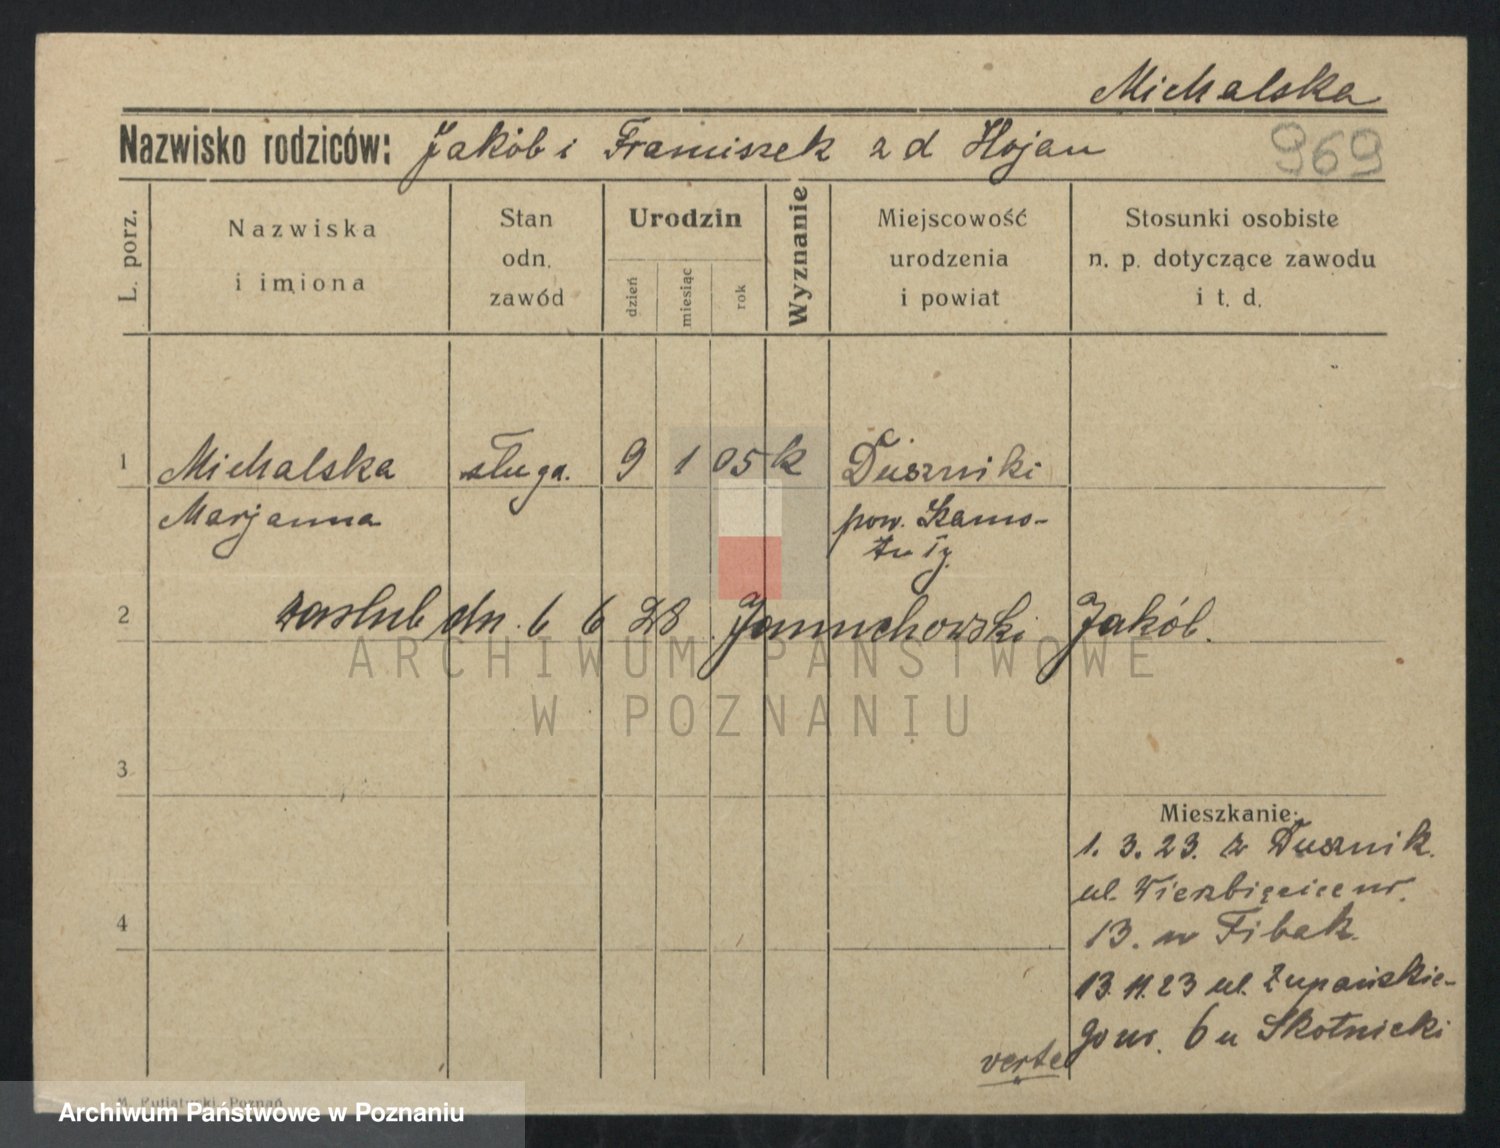 Michalska
Nazwisko rodziców: Jakób i Franciszek z d Hojan
969
L. porz.
Nazwiska
i imiona
Stan
odn.
zawód
Urodzin
dzień
miesiąc
rok
Wyznanie
Miejscowość
urodzenia
i powiat
Stosunki osobiste
n. p. dotyczące zawodu
i t. d.
1 Michalska sługa. 9 1 05 k Duszniki
Marjanna pow. Szamo-
tuły
2 zaslub dn. 6 6 28 Januchowski Jakób.
ARCHIWUM PAŃSTWOWE
W POZNANIU
3
Mieszkanie:
1. 3. 23. z Dusznik.
ul. Wierzbięcice nr.
4
13. u Fibak.
13. 11. 23 ul. Żupańskie-
go nr. 6 u Skotnicki
verte
Archiwum Państwowe w Poznaniu